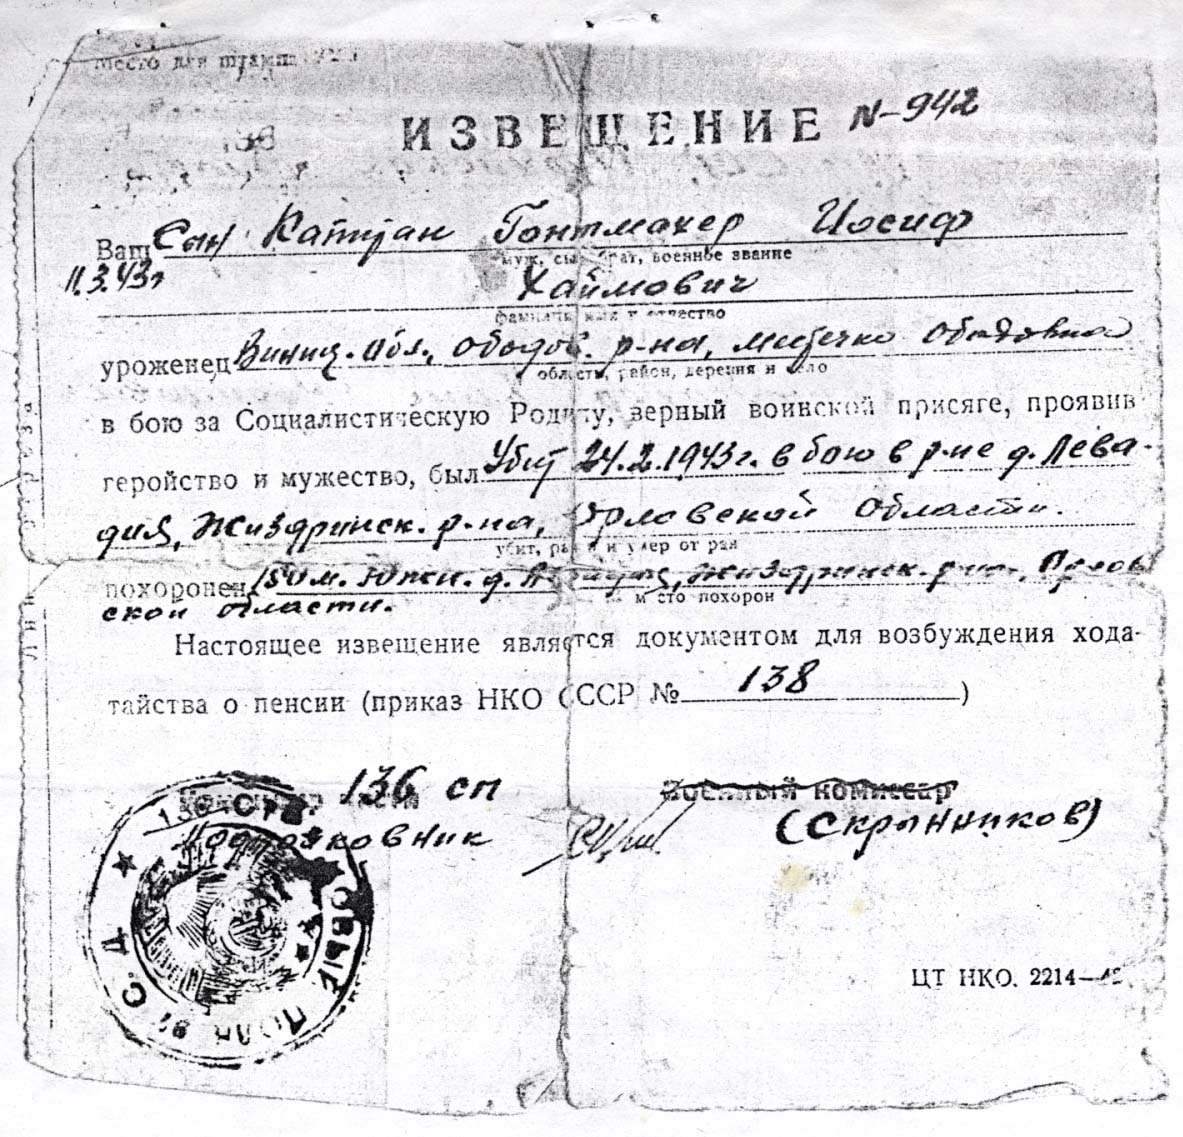 Место для штампа
ИЗВЕЩЕНИЕ N-942
Ваш сын Капитан Гонтмахер Иосиф
муж, сын, брат, военное звание
11.3.43г
Хаймович
фамилия, имя и отчество
уроженец Винниц. обл., Ободов. р-на, местечко Ободовка
область, район, деревня и село
в бою за Социалистическую Родину, верный воинской присяге, проявив
геройство и мужество, был Убит 24.2.1943г. в бою в р-не д. Лева-
дия, Жиздринск. р-на, Орловской области.
убит, ранен и умер от ран
похоронен 150 м. южн. д. Жиздринск. р-на, Орлов
ской области.
место похорон
Настоящее извещение является документом для возбуждения хода-
тайства о пенсии (приказ НКО СССР № 138 )
136 сп
Военный комиссар
Подполковник
(Скрынников)
ЦТ НКО. 2214—42